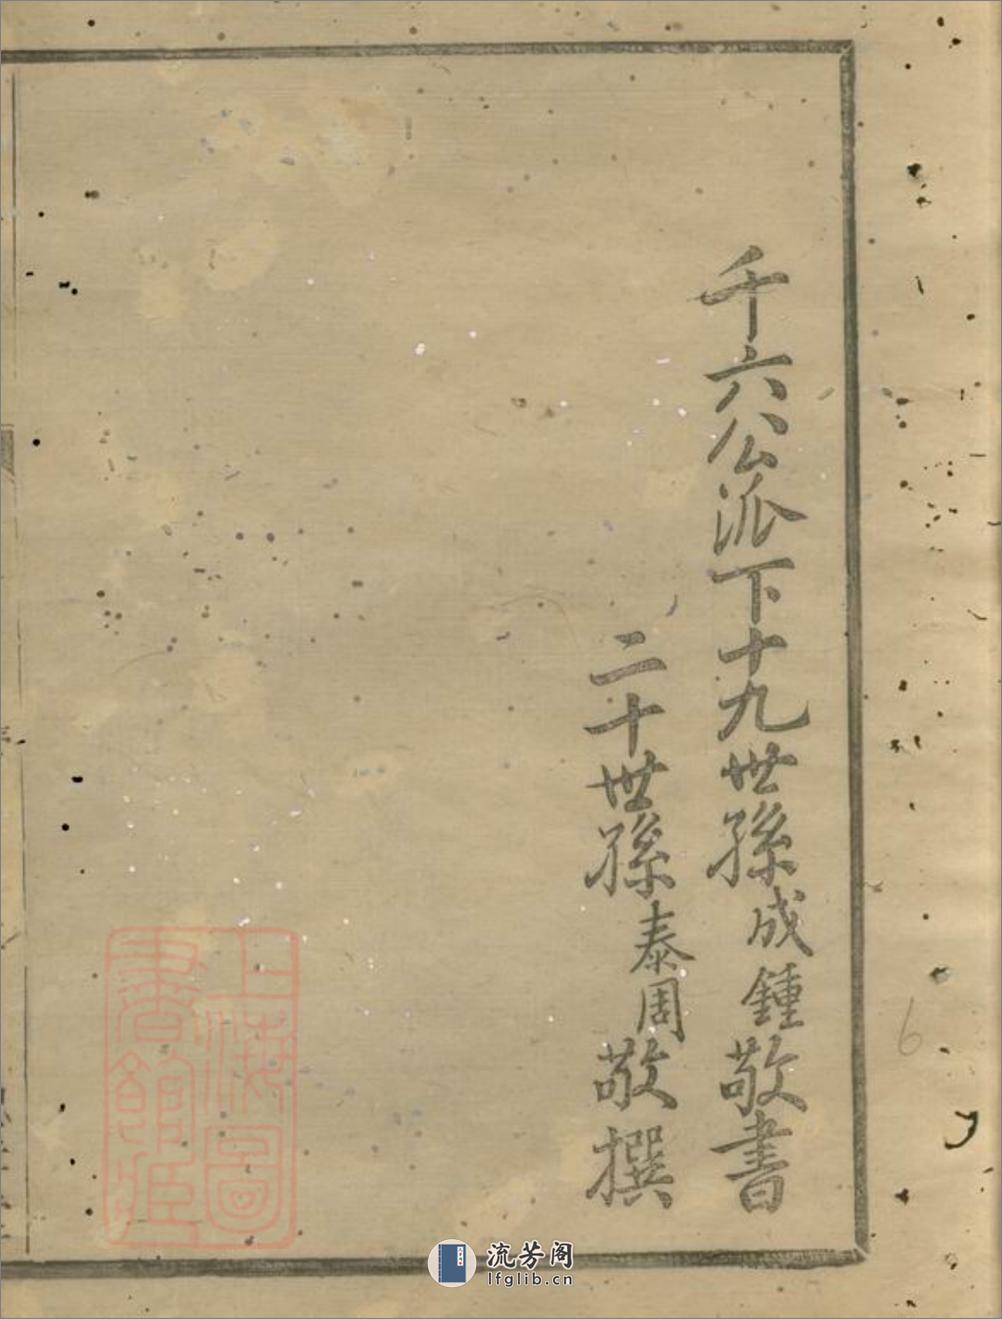 千六公派下十九世孫成鍾敬書
二十世孫泰周敬撰
上海圖書館藏
6
流芳阁
lfglib.cn